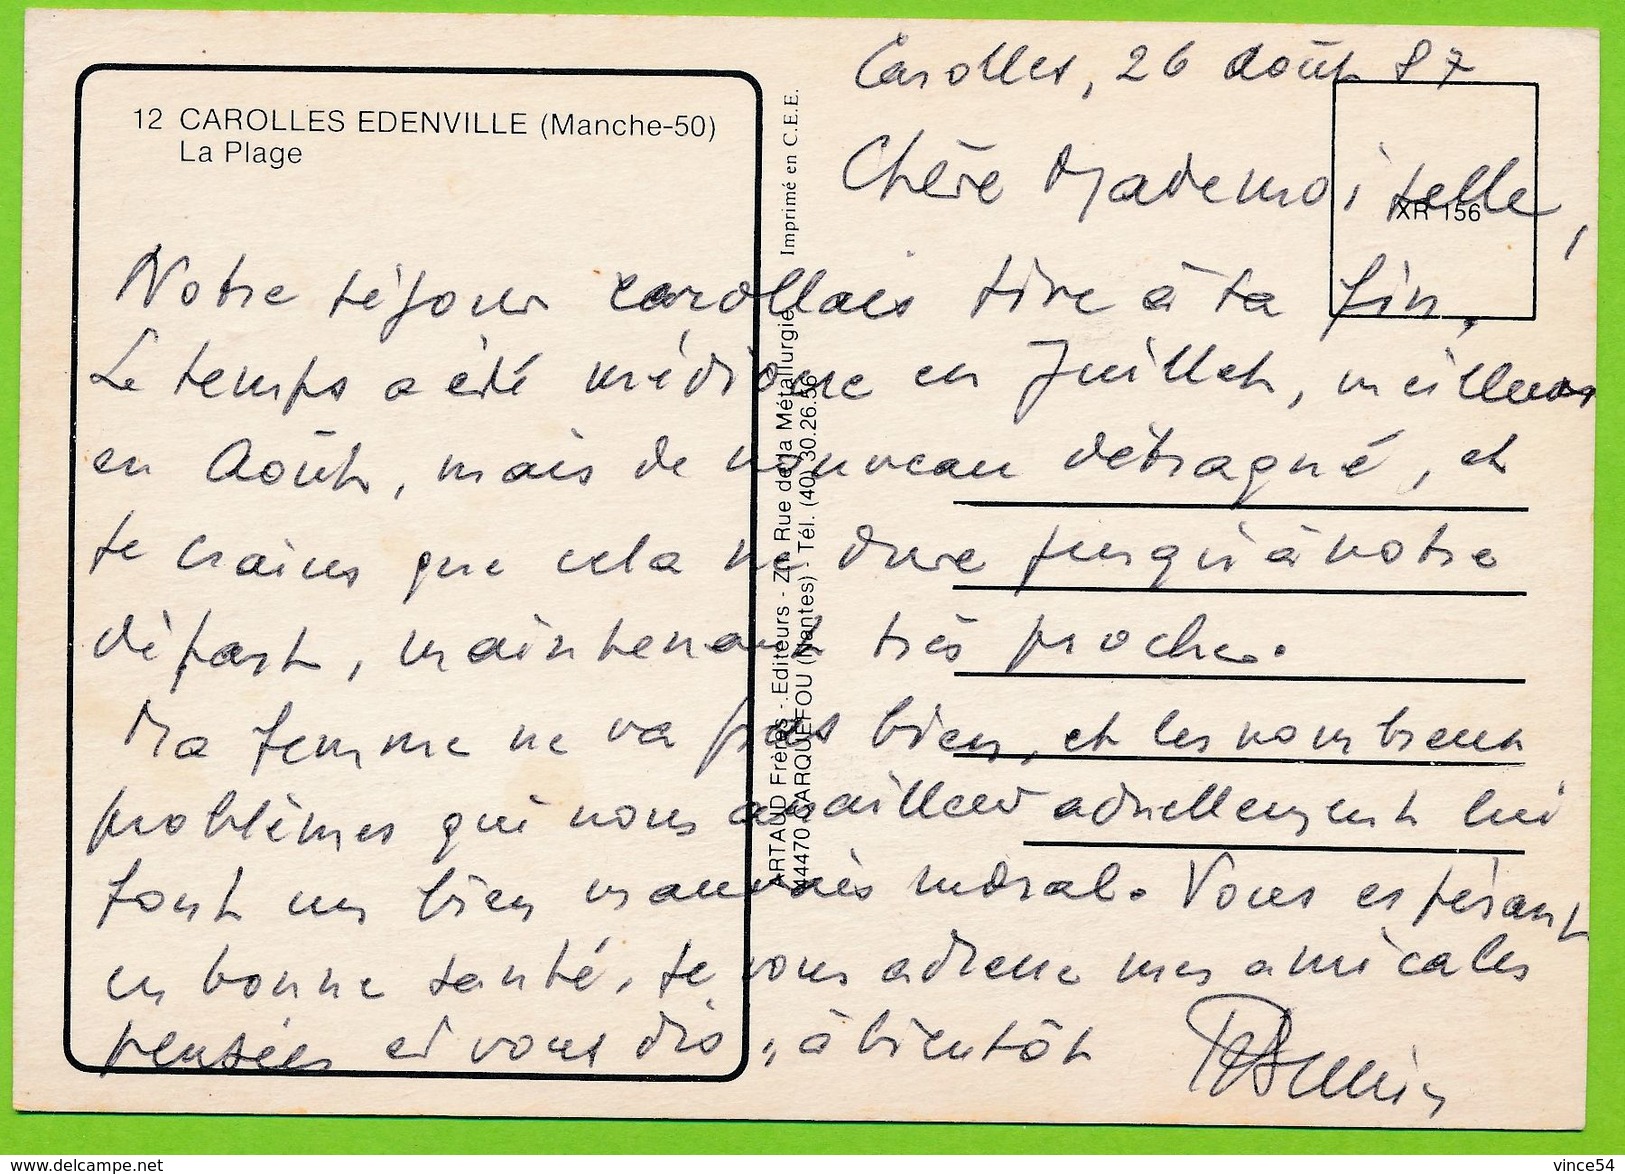 Carolles, 26 Août 87
12 CAROLLES EDENVILLE (Manche-50)
La Plage
Chère Mademoiselle,
XR 156
Notre séjour carollais tire à sa fin.
Le temps a été médiocre en Juillet, meilleur
en Août, mais de nouveau détraqué, et
je crains que cela ne dure jusqu'à notre
départ, maintenant très proche.
Ma femme ne va pas bien, et les nombreux
problèmes qui nous assaillent actuellement lui
font un bien mauvais moral. Vous espérant
en bonne santé, je vous adresse mes amicales
pensées et vous dis "à bientôt
ARTAUD Frères - Editeurs - Z.I. Rue de la Métallurgie
44470 CARQUEFOU (Nantes) - Tél. (40) 30.26.56
Imprimé en C.E.E.
www.delcampe.net
vince54